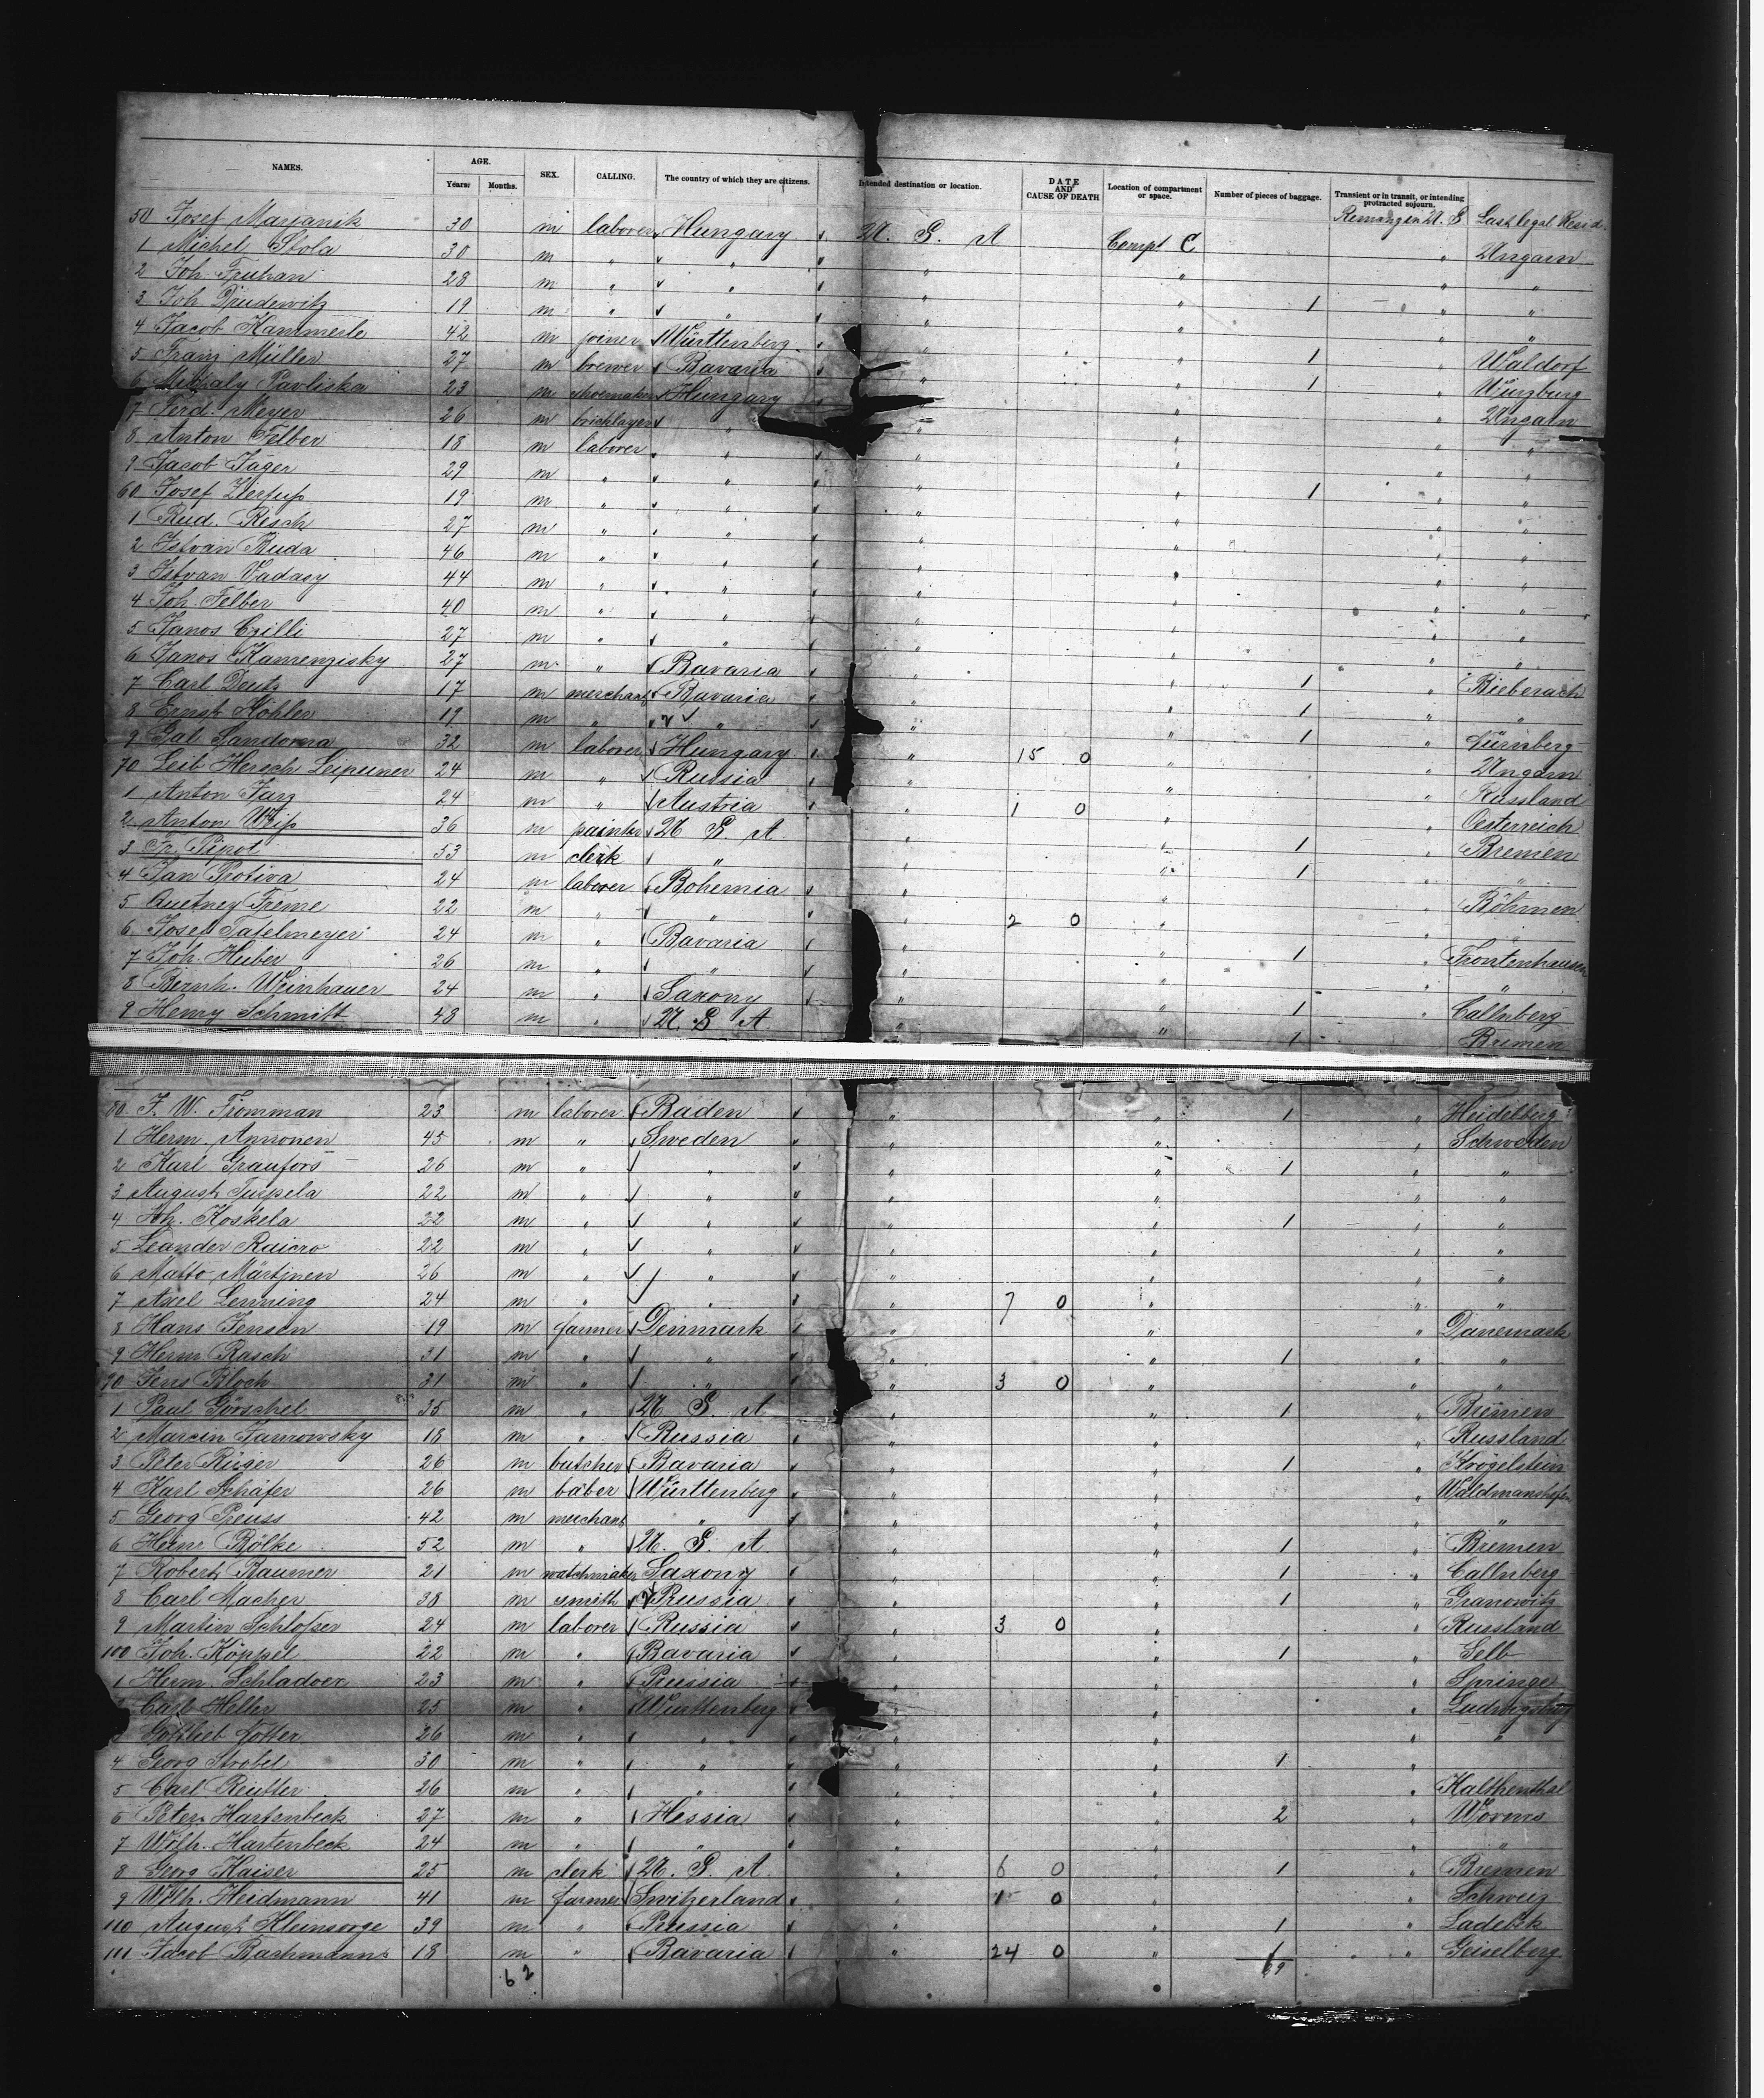 NAMES. AGE. Years Months. SEX. CALLING. The country of which they are citizens. Intended destination or location. DATE AND CAUSE OF DEATH Location of compartment or space. Number of pieces of baggage. Transient or in transit, or intending protracted sojourn.
Remaing in U. S. Last legal Resid.
50 Josef Marjanik 30 m laborer Hungary U. S. A Compt C Ungarn
1 Michel Stola 30 m " " " " " "
2 Joh. Fruhan 28 m " " " " 1 " "
3 Joh. Drudewitz 19 m " " " " " "
4 Jacob Kammerle 42 m joiner Württenberg " " 1 " Waldorf
5 Franz Müller 27 m brewer Bavaria " " 1 " Würzburg
6 Mihaly Pavliska 23 m shoemaker Hungary " " " Ungarn
7 Ferd. Meyer 26 m bricklayer " " " " "
8 Anton Felber 18 m laborer " " " " "
9 Jacob Jäger 29 m " " " " 1 " "
60 Josef 19 m " " " " " "
1 Rud. Resch 27 m " " " " " "
2 Istvan Buda 46 m " " " " " "
3 Istvan Vadasy 44 m " " " " " "
4 Joh. Felber 40 m " " " " " "
5 Janos Czilli 27 m " " " " " "
6 Janos Kamenzisky 27 m " Bavaria " " 1 " Bieberach
7 Carl Deutz 17 m merchant Bavaria " " 1 " "
8 Ernst Köhler 19 m " " " " 1 " Nürnberg
9 Gab. Sandorna 32 m laborer Hungary " 15 0 " " Ungarn
70 Leib Hersch Leipuner 24 m " Russia " " " Russland
1 Anton Jarz 24 m " Austria " 1 0 " " Oesterreich
2 Anton Weiss 36 m painter U S A " " 1 " Bremen
3 Fr. Pipot 53 m clerk " " " 1 " "
4 Jan Protiva 24 m laborer Bohemia " " " Böhmen
5 Treme 22 m " " " 2 0 " " "
6 Josef Tafelmeyer 24 m " Bavaria " " 1 " Frontenhausen
7 Joh. Huber 26 m " " " " " "
8 Bernh. Weinhauer 24 m " Saxony " " 1 " Callnberg
9 Henry Schmitt 48 m " U. S A " " 1 " Bremen
80 F. W. Fromman 23 m laborer Baden " " 1 " Heidelberg
1 Herm. Annonen 45 m " Sweden " " " Schweden
2 Karl Graufors 26 m " " " " 1 " "
3 August Turpela 22 m " " " " " "
4 Joh. Koskela 22 m " " " " 1 " "
5 Leander Raicro 22 m " " " " " "
6 Matto Märtjnen 26 m " " " " " "
7 Axel Lenning 24 m " " " 7 0 " " "
8 Hans Jensen 19 m farmer Denmark " " " Danemark
9 Herm Rasch 31 m " " " " 1 " "
90 Jens Bloch 31 m " " " 3 0 " " "
1 Paul Görschel 35 m " U S. A " " 1 " Bremen
2 Marcin Janrowsky 18 m " Russia " " " Russland
3 Peter Rieger 26 m butcher Bavaria " " 1 " Krögelstein
4 Karl Schäfer 26 m baber Württenberg " " " Waldmanshofen
5 Georg Preuss 42 m merchant " " " " "
6 Heinr Bölke 52 m " U. S. A " " 1 " Bremen
7 Robert Baumer 21 m watchmaker Saxony " " 1 " Callnberg
8 Carl Macher 38 m smith Prussia " " 1 " Granowitz
9 Martin Schlosser 24 m laborer Russia " 3 0 " " Russland
100 Joh. Köppel 22 m " Bavaria " " 1 " Selb
1 Herm. Schladoer 23 m " Prussia " " " Springe
2 Carl Heller 25 m " Württenberg " " " Ludwigsburg
3 Gottlieb Lotter 26 m " " " " " "
4 Georg Strobel 30 m " " " " 1
5 Carl Reutter 26 m " " " " " Kalthenthal
6 Peter Hartenbeck 27 m " Hessia " " 2 " Worms
7 Wilh. Hartenbeck 24 m " " " " " "
8 Georg Kaiser 25 m clerk U. S. A " 6 0 " 1 " Bremen
9 Wilh. Heidmann 41 m farmer Switzerland " 1 0 " " Schweiz
110 August Kleinsorge 39 m " Prussia " " 1 " Ladebek
111 Jacob Bachmann 18 m " Bavaria " 24 0 " 1 " Geiselberg
62